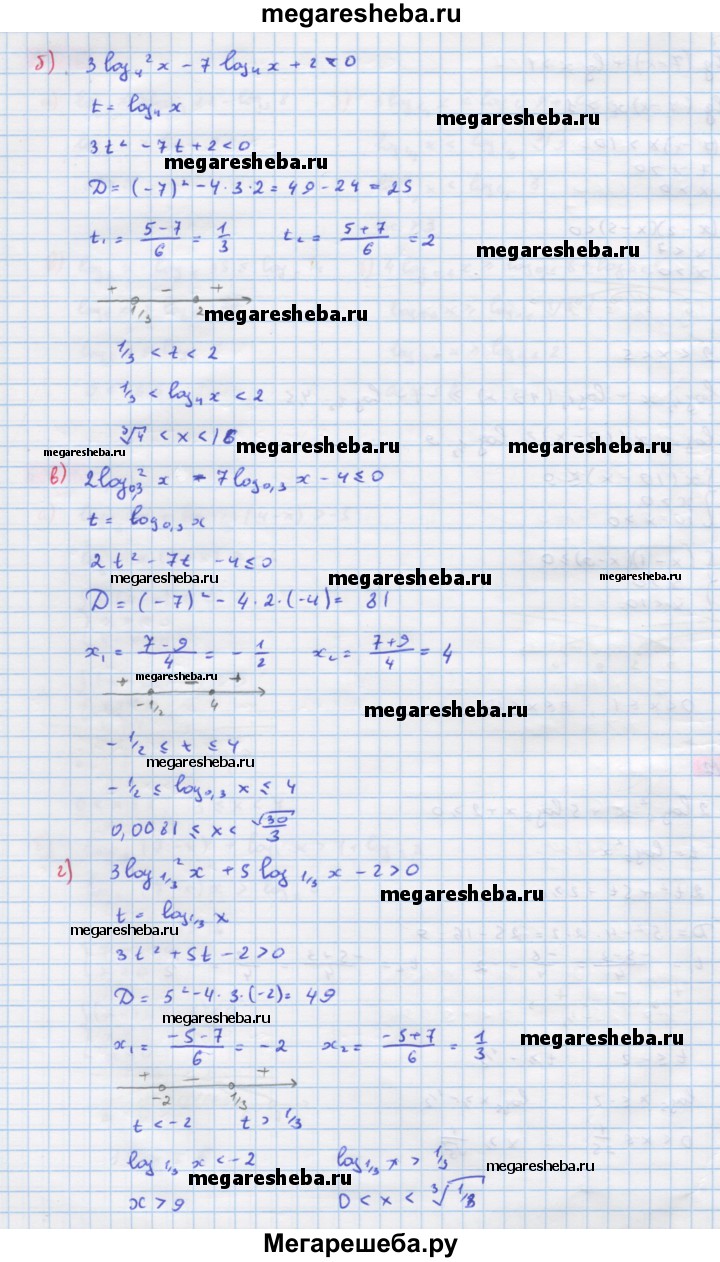 megaresheba.ru
б) 3 log₄² x - 7 log₄ x + 2 < 0
t = log₄ x
megaresheba.ru
3t² - 7t + 2 < 0
megaresheba.ru
D = (-7)² - 4·3·2 = 49 - 24 = 25
t₁ = (5-7)/6 = 1/3   t₂ = (5+7)/6 = 2
megaresheba.ru
+ - +
1/3 2
megaresheba.ru
1/3 < t < 2
1/3 < log₄ x < 2
∛4 < x < 16
megaresheba.ru megaresheba.ru megaresheba.ru
в) 2 log₀,₃² x - 7 log₀,₃ x - 4 ≤ 0
t = log₀,₃ x
2t² - 7t - 4 ≤ 0
megaresheba.ru megaresheba.ru megaresheba.ru
D = (-7)² - 4·2·(-4) = 81
x₁ = (7-9)/4 = -1/2   x₂ = (7+9)/4 = 4
megaresheba.ru
+ - +
-1/2 4
megaresheba.ru
-1/2 ≤ t ≤ 4
megaresheba.ru
-1/2 ≤ log₀,₃ x ≤ 4
0,0081 ≤ x < √30/3
г) 3 log₁/₃² x + 5 log₁/₃ x - 2 > 0
megaresheba.ru
t = log₁/₃ x
megaresheba.ru
3t² + 5t - 2 > 0
D = 5² - 4·3·(-2) = 49
megaresheba.ru
x₁ = (-5-7)/6 = -2   x₂ = (-5+7)/6 = 1/3
megaresheba.ru
+ - +
-2 1/3
t < -2   t > 1/3
log₁/₃ x < -2   log₁/₃ x > 1/3
megaresheba.ru megaresheba.ru
x > 9   0 < x < ∛(1/3)
Мегарешеба.ру